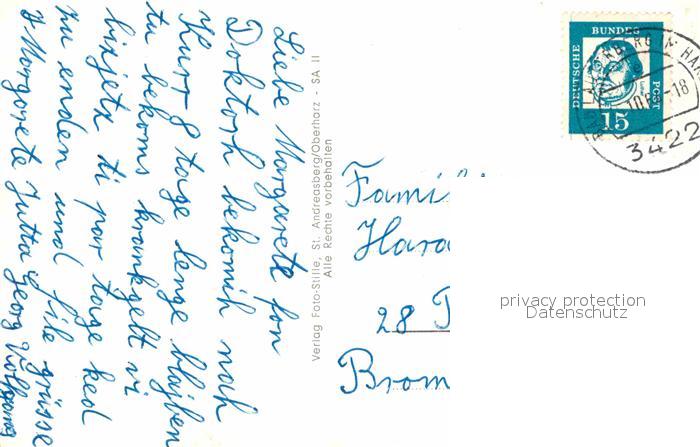 Liebe Margarete fon
Doktorh bekomih noch
Kurr 8 tage lenge blajben
tu bekoms krankgelt vi
bixjetz ti par tage ked
zu enden und file grüsse
Margarete Jutta Georg Wolfgang
Verlag Foto-Stille, St. Andreasberg/Oberharz - SA II
Alle Rechte vorbehalten
DEUTSCHE BUNDES POST
15
-18
3422
Famil
Hara
28
Brom
privacy protection
Datenschutz